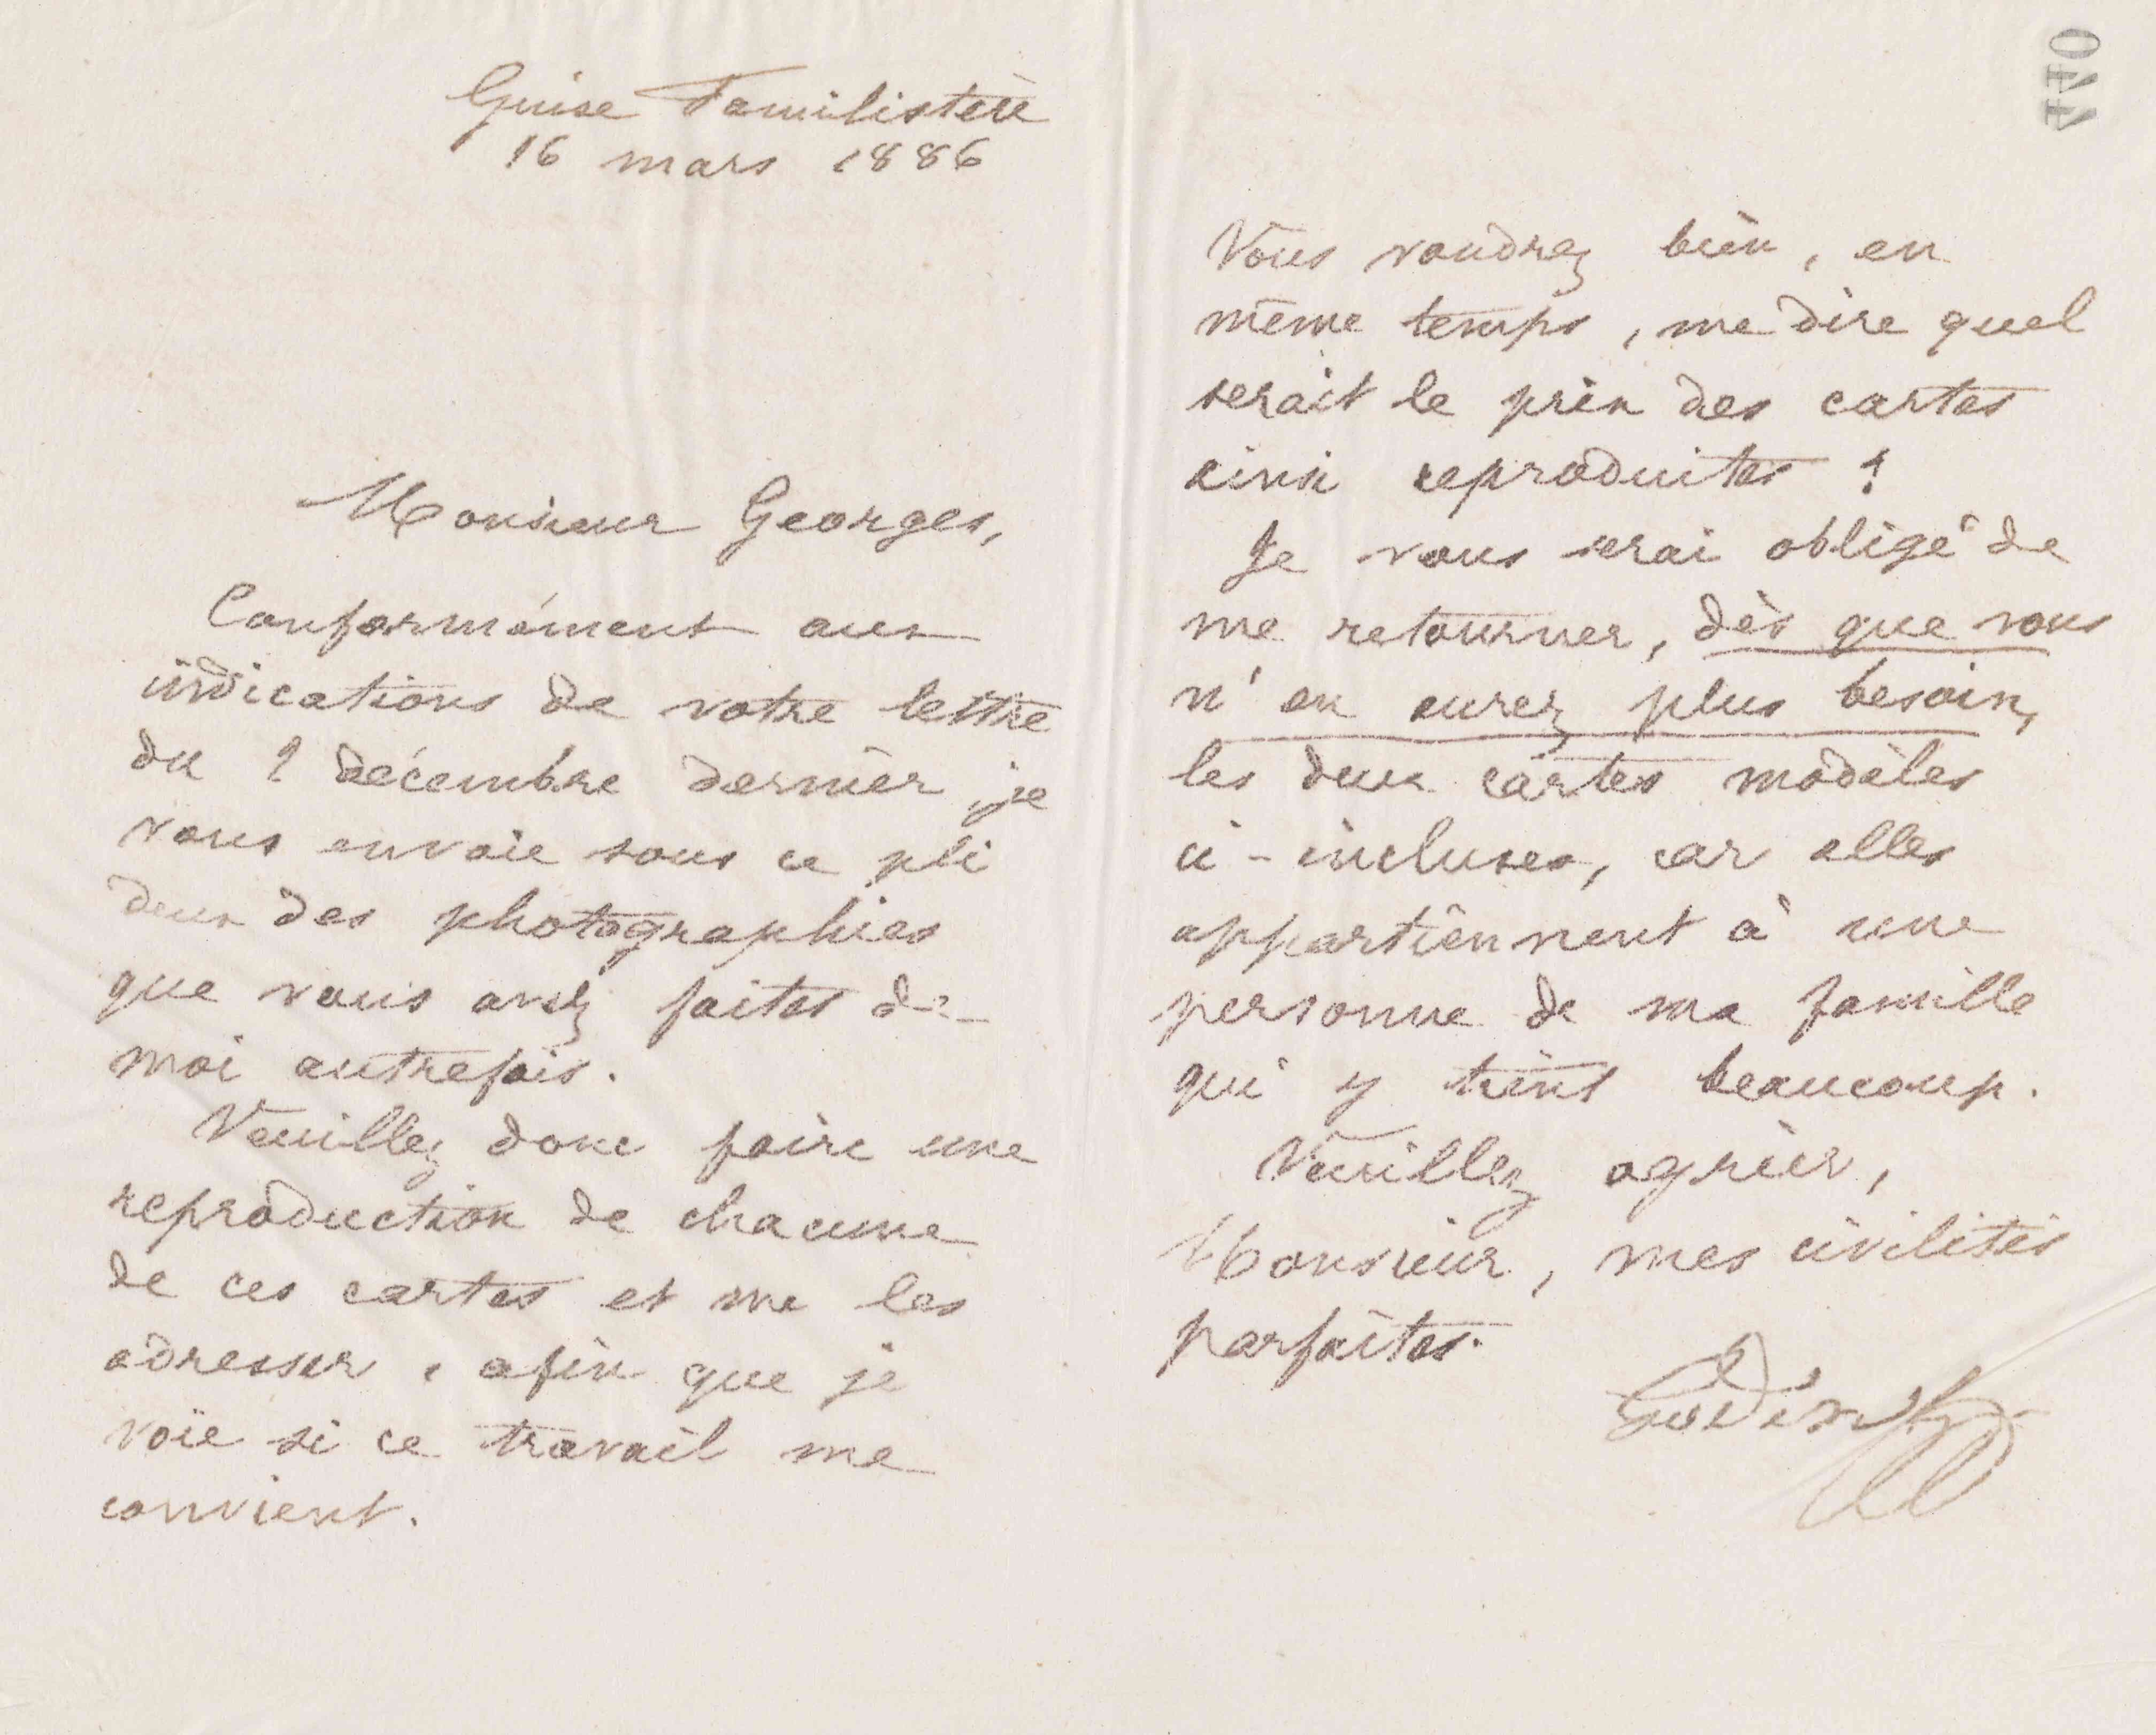 Guise Familistère
16 mars 1886
Monsieur Georges,
Conformément aux
indications de votre lettre
du 2 décembre dernier je
vous envoie sous ce pli
deux des photographies
que vous avez faites de
moi autrefois.
Veuillez donc faire une
reproduction de chacune
de ces cartes et me les
adresser, afin que je
voie si ce travail me
convient.
770
Vous voudrez bien, en
même temps, me dire quel
serait le prix des cartes
ainsi reproduites ?
Je vous serai obligé de
me retourner, dès que vous
n'en aurez plus besoin,
les deux cartes modèles
ci-incluses, car elles
appartiennent à une
personne de ma famille
qui y tient beaucoup.
Veuillez agréer,
Monsieur, mes civilités
parfaites.
Godin